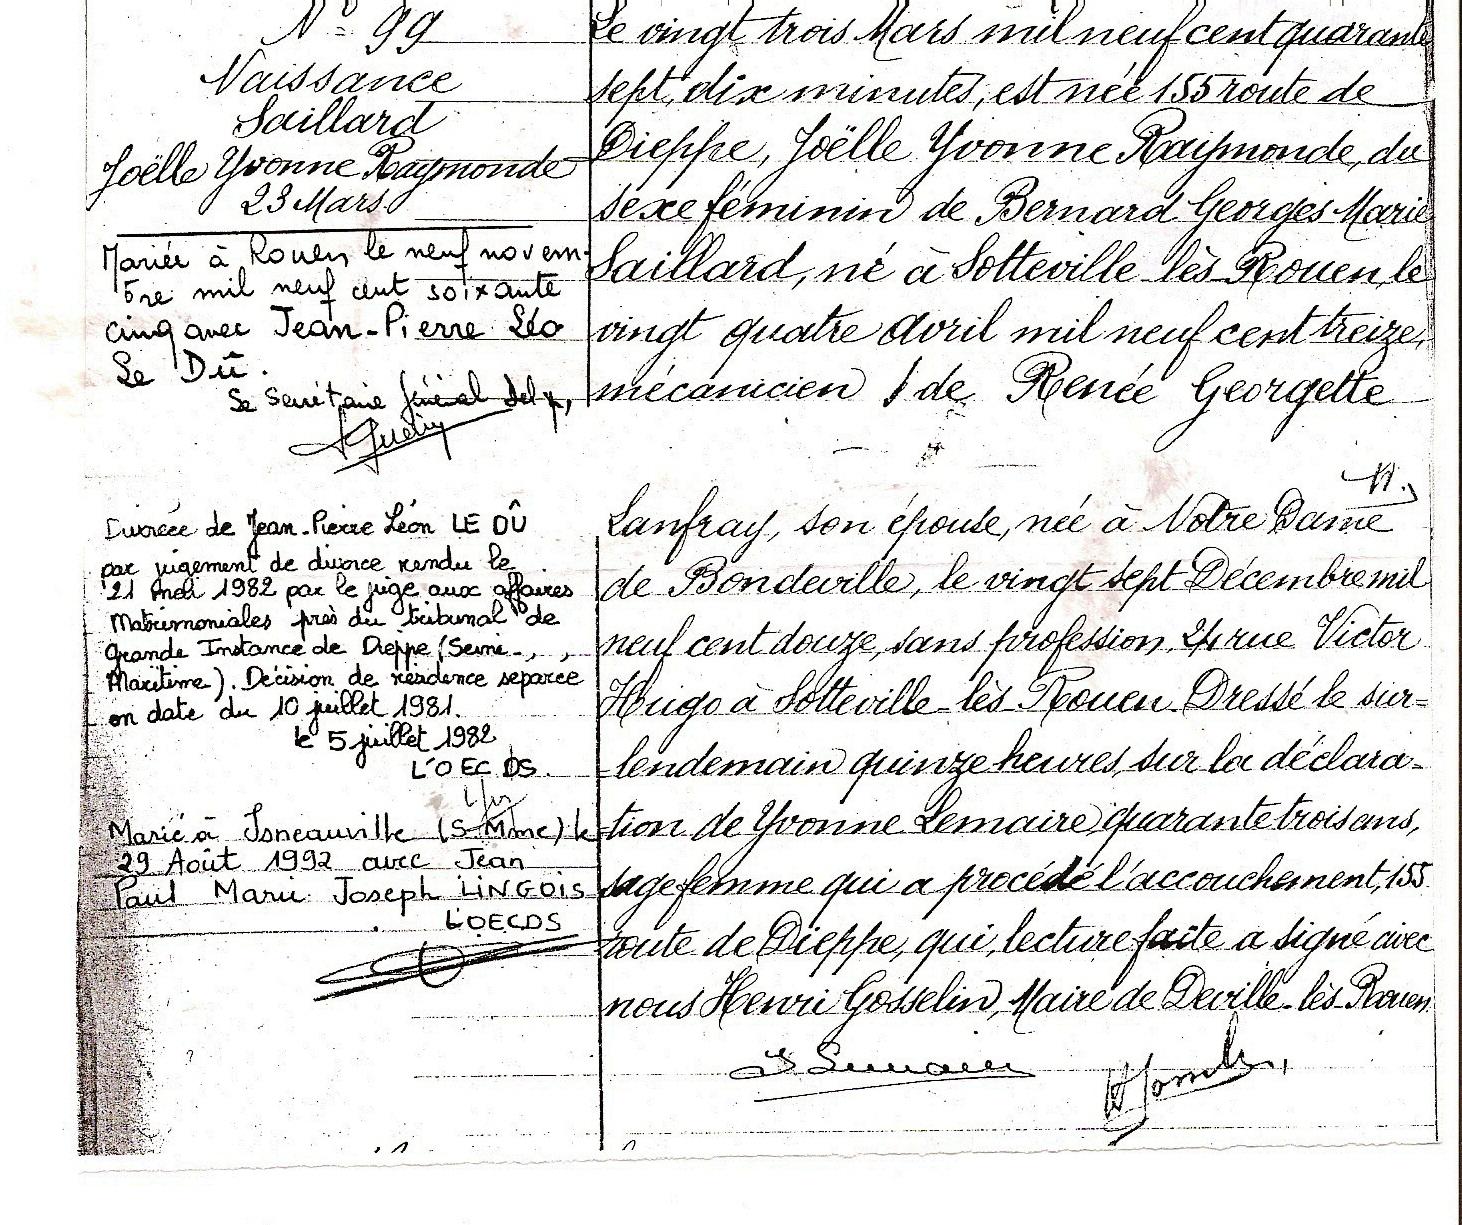 N° 99
Naissance
Saillard
Joëlle Yvonne Raymonde
23 Mars
Mariée à Rouen le neuf novem-
bre mil neuf cent soixante
cinq avec Jean-Pierre Léo
Le Dû.
Le Secrétaire Général Del,
Divorcée de Jean-Pierre Léon LE DÛ
par jugement de divorce rendu le
21 mai 1982 par le juge aux affaires
Matrimoniales près du tribunal de
Grande Instance de Dieppe (Seine-
Maritime). Décision de résidence séparée
en date du 10 juillet 1981.
le 5 juillet 1982
L'OEC DS.
Marié à Isneauville (S-Mme) le
29 Août 1992 avec Jean
Paul Marie Joseph LINGOIS
L'OECDS
Le vingt trois Mars mil neuf cent quarante
sept, dix minutes, est née 155 route de
Dieppe, Joëlle Yvonne Raymonde, du
sexe féminin de Bernard Georges Marie
Saillard, né à Sotteville lès Rouen, le
vingt quatre avril mil neuf cent treize,
mécanicien / de Renée Georgette
Lanfray, son épouse, née à Notre Dame
de Bondeville, le vingt sept Décembre mil
neuf cent douze, sans profession, 24 rue Victor
Hugo à Sotteville-lès Rouen. Dressé le sur-
lendemain quinze heures, sur la déclara-
tion de Yvonne Lemaire, quarante trois ans,
sage femme qui a procédé l'accouchement, 155
route de Dieppe, qui, lecture faite a signé avec
nous Henri Gosselin, Maire de Deville-lès Rouen